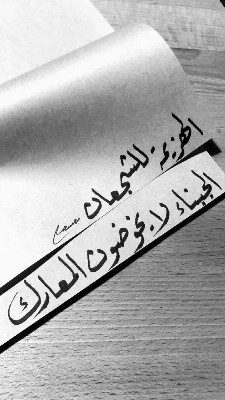 الهزيمة للشجعان
الجبناء لا يخوضون المعارك